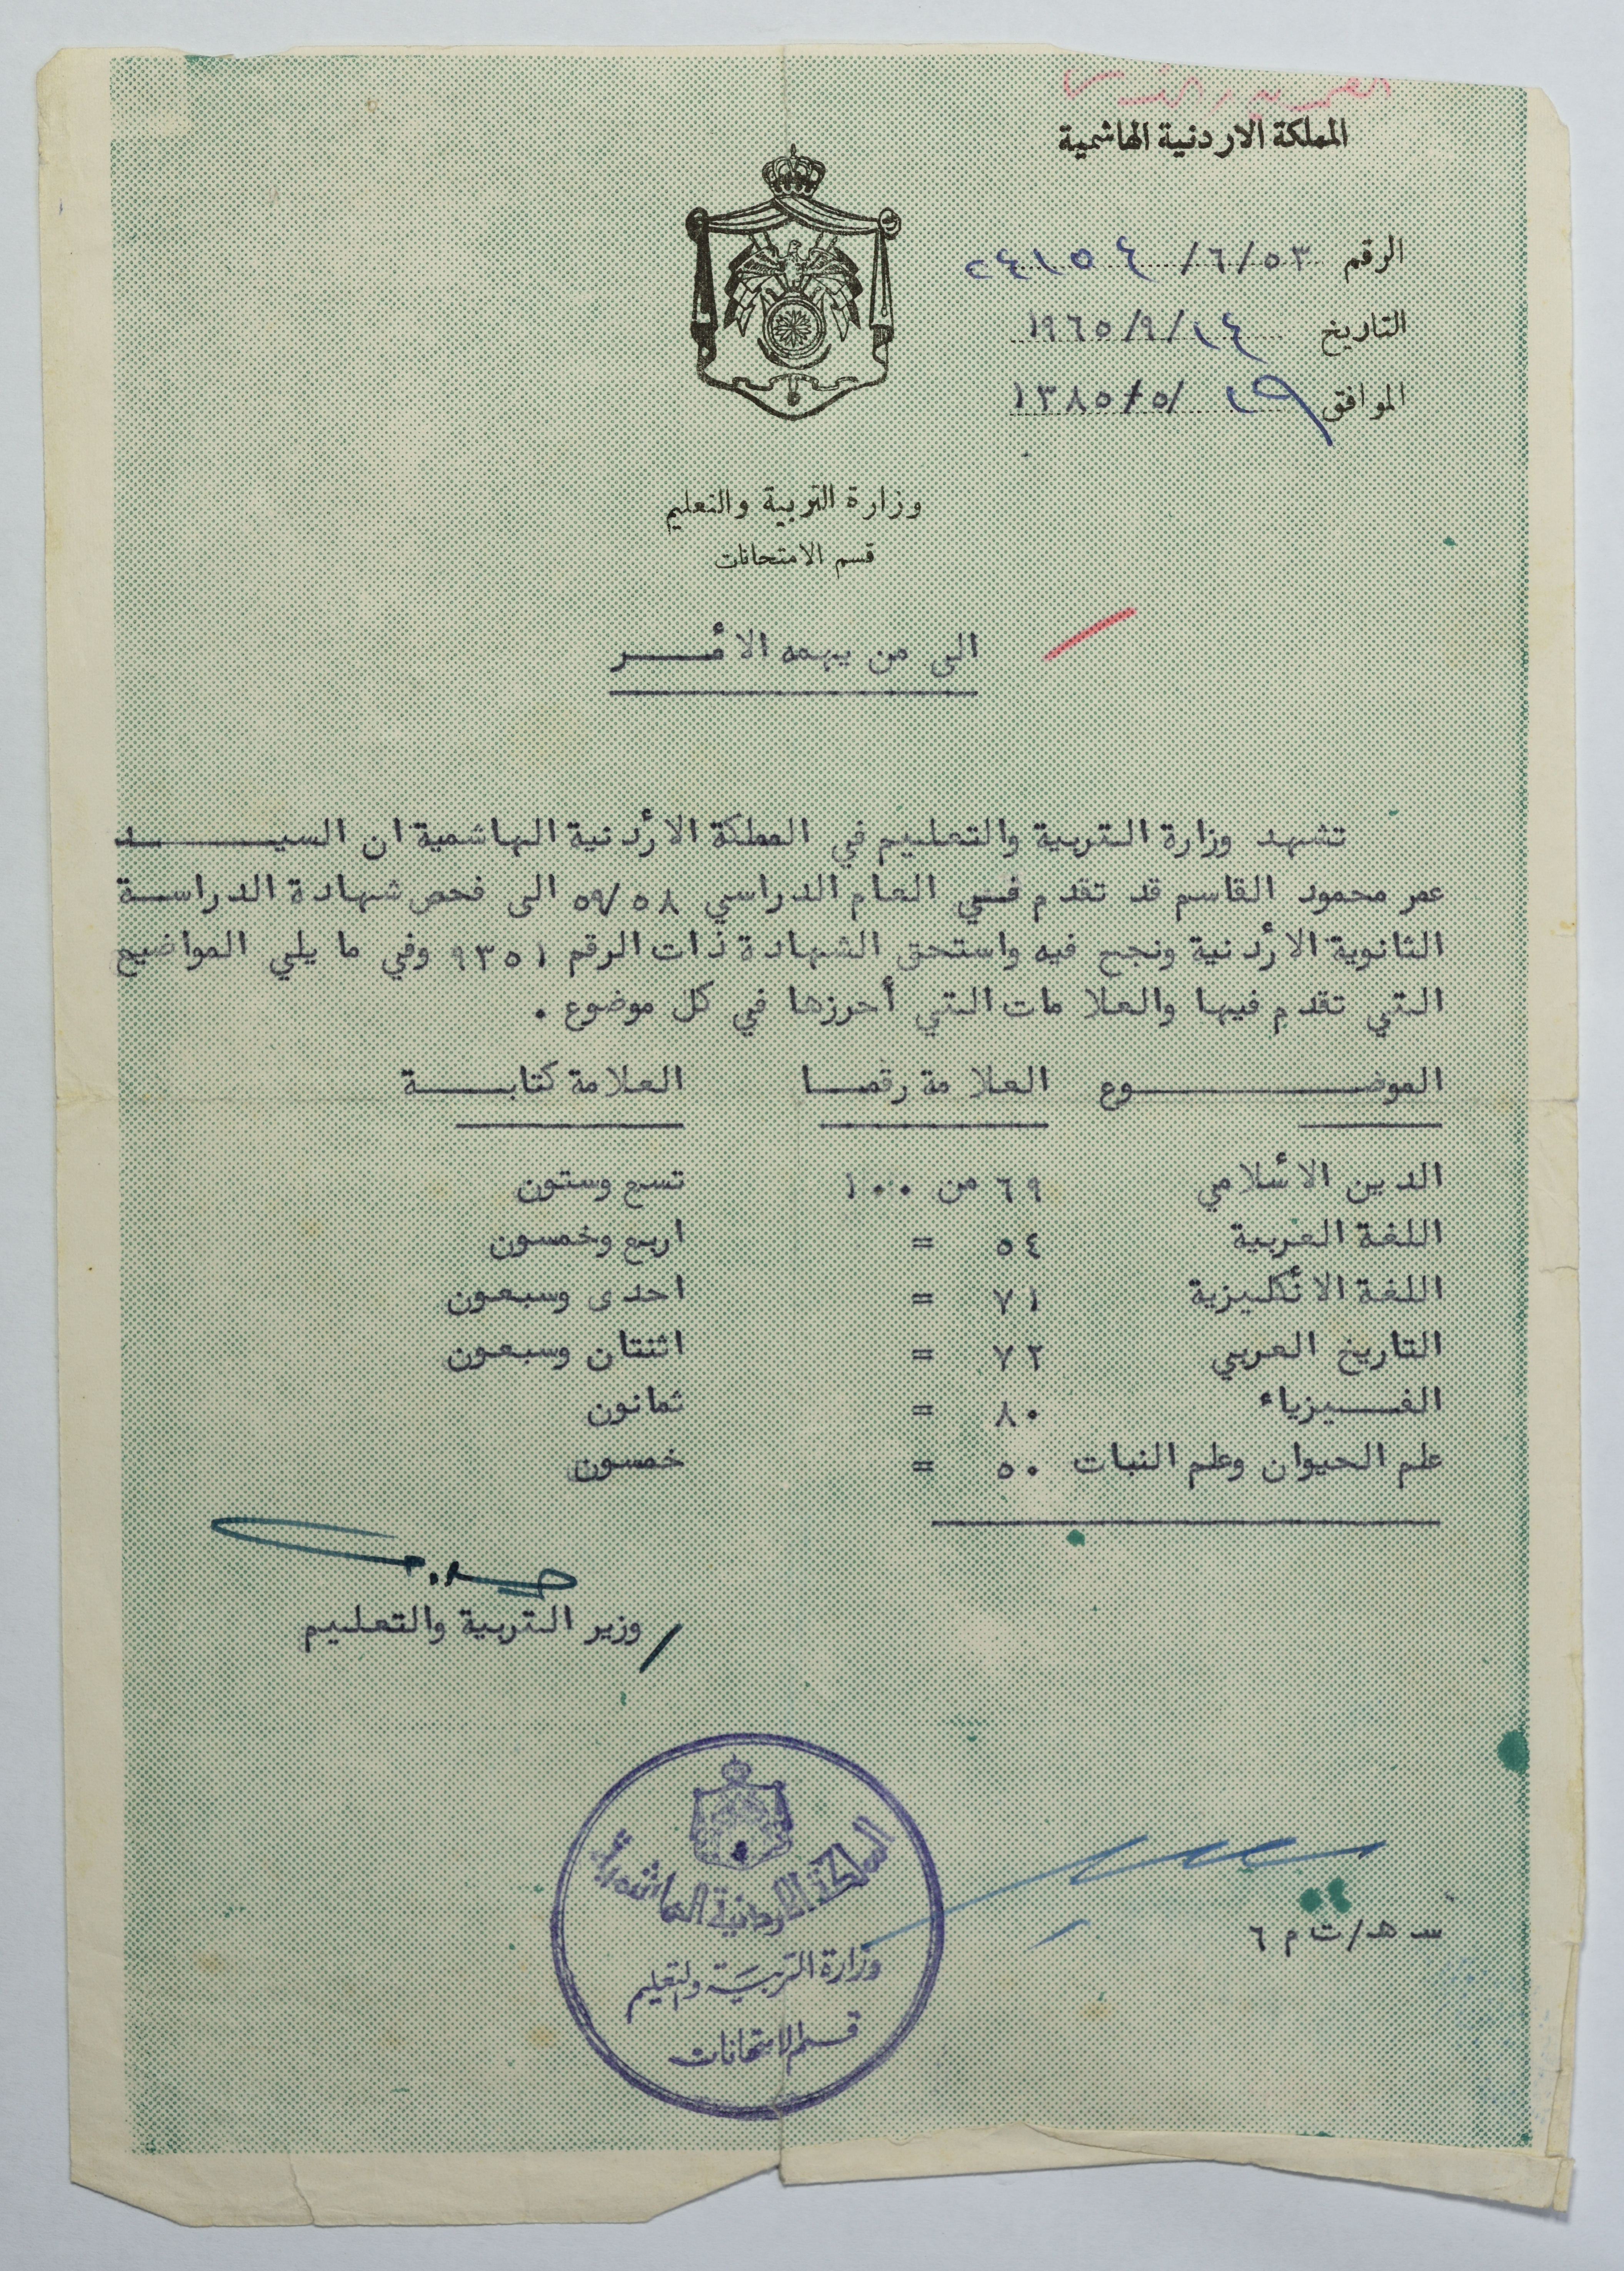 المملكة الاردنية الهاشمية
الرقم ٦/٥٣/ ٢٤١٥٤
التاريخ ١٩٦٥/٩/١٤
الموافق ١٣٨٥/٥/١٩
وزارة التربية والتعليم
قسم الامتحانات
الى من يهمه الأمـــر
تشهد وزارة التربية والتعليم في المملكة الأردنية الهاشمية ان السيــــد
عمر محمود القاسم قد تقدم فــي العام الدراسي ٥٩/٥٨ الى فحص شهادة الدراســة
الثانوية الأردنية ونجح فيه واستحق الشهادة ذات الرقم ٩٣٥١ وفي ما يلي المواضيع
التي تقدم فيها والعلامات التي أحرزها في كل موضوع .
الموضـــــــوع العلامة رقمــا العلامة كتابــــة
الدين الأسلامي ٦٩ من ١٠٠ تسع وستون
اللغة العربية ٥٤ = اربع وخمسون
اللغة الأنكليزية ٧١ = احدى وسبعون
التاريخ العربي ٧٢ = اثنتان وسبعون
الفـــيزياء ٨٠ = ثمانون
علم الحيوان وعلم النبات ٥٠ = خمسون
/ وزير التربية والتعليم
المملكة الاردنية الهاشمية
وزارة التربية والتعليم
قسم الامتحانات
س هـ/ت م ٦